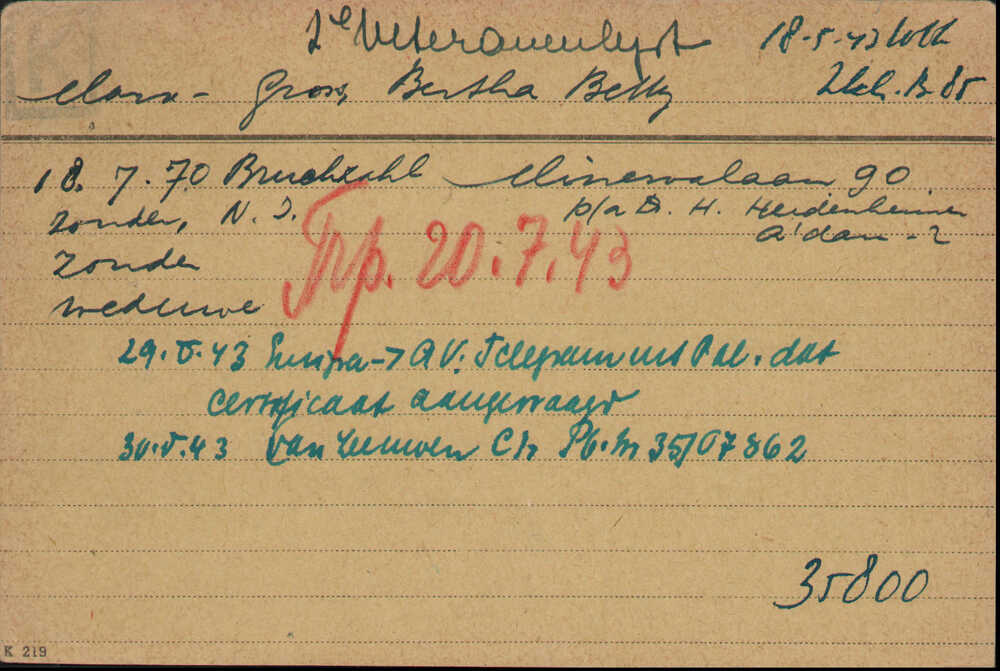 1e Veteranenlijst 18-5-43 Wbk
Marx - Gross, Bertha Betty Zbch. Br. 85
18. 7. 70 Bruchzahl Minervalaan 90
zonder, N. I. p/a D. H. Heidenheimer
A'dam - Z
zonder
weduwe
Trp. 20.7.43
29.5.43 -> AV. Telegram uit Pal. dat
certificaat aangevraagd
30.5.43 van Leeuwen Ch Pb. Nr 35/07862
35800
K 219